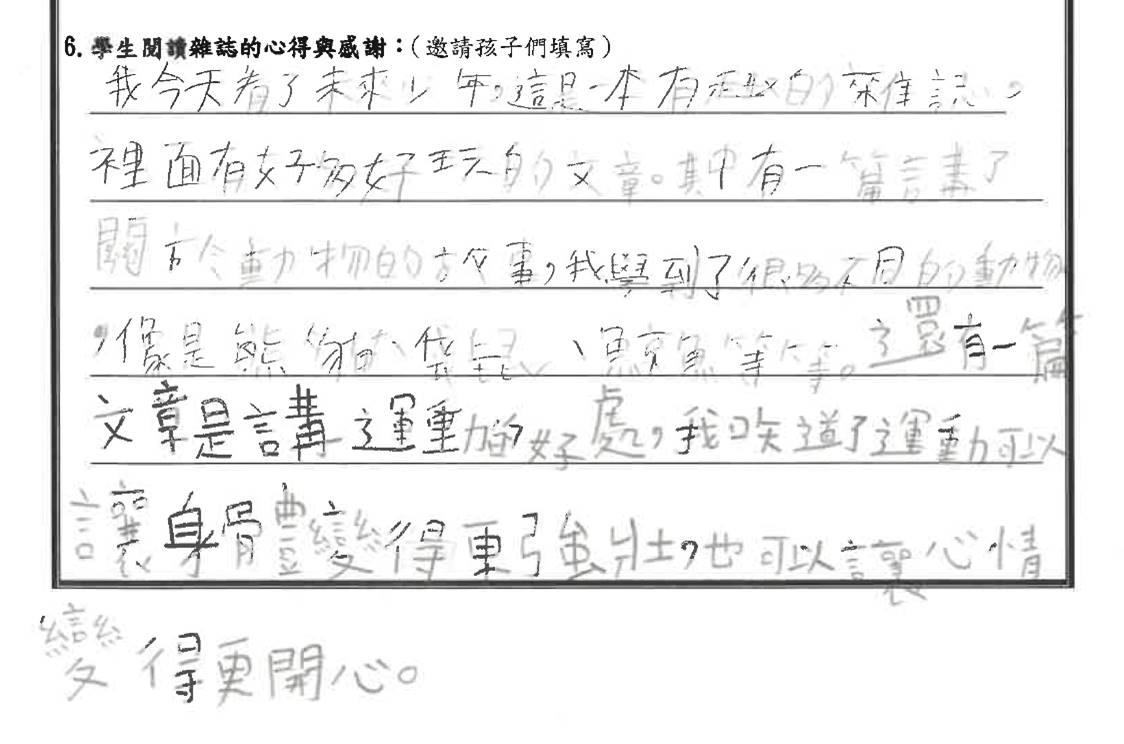 6. 學生閱讀雜誌的心得與感謝：(邀請孩子們填寫)
我今天看了未來少年。這是一本有趣的雜誌。
裡面有好多好玩的文章。其中有一篇講了
關於動物的故事，我學到了很多不同的動物
，像是熊貓、袋鼠、鯨魚等等。還有一篇
文章是講運動的好處，我知道了運動可以
讓身體變得更強壯，也可以讓心情
變得更開心。